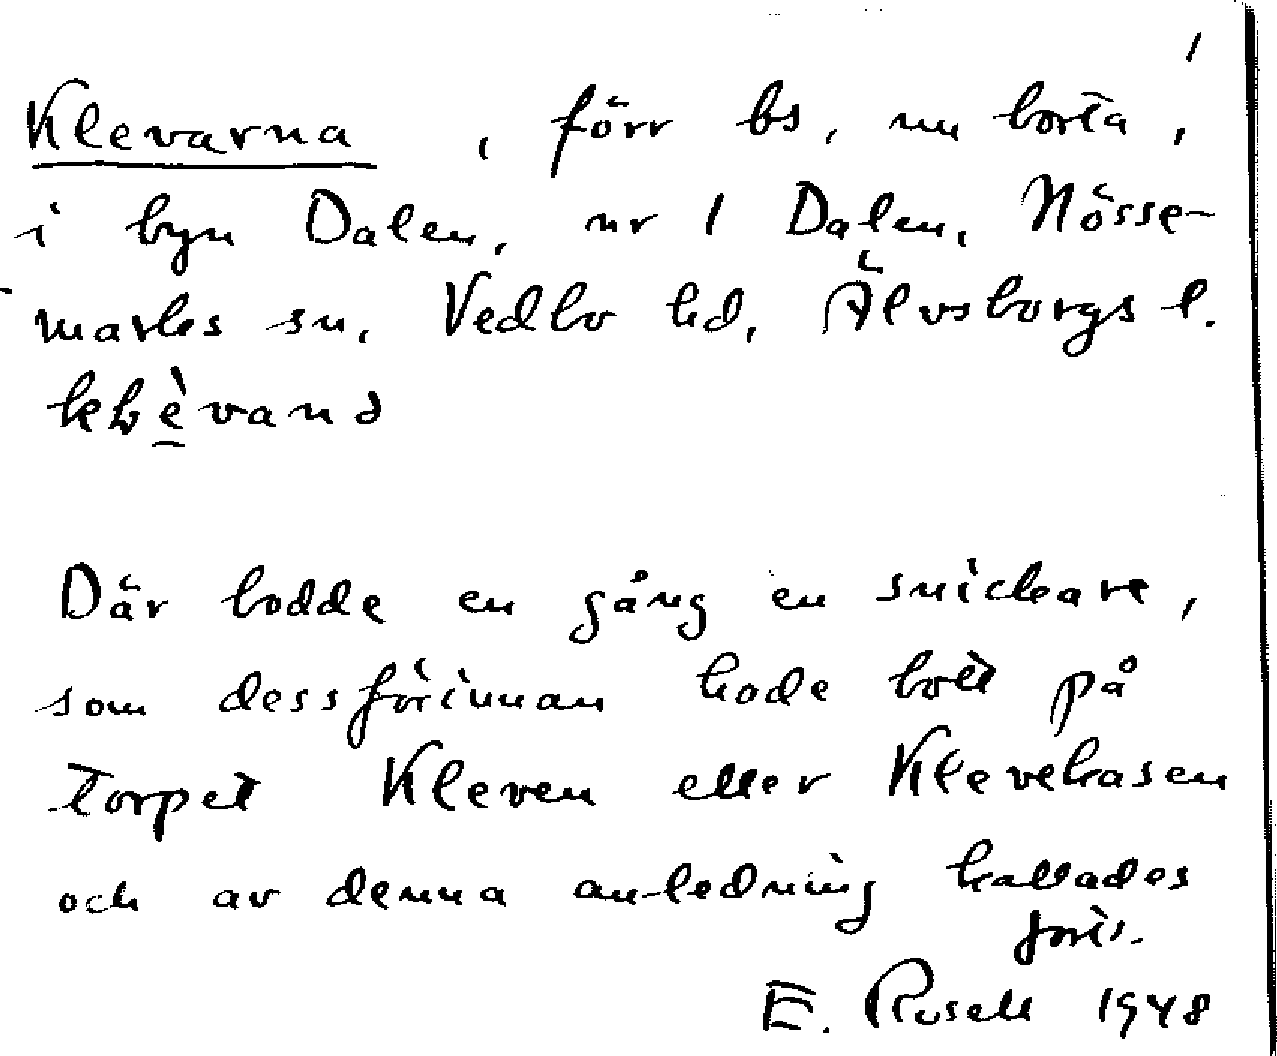 1
Klevarna, förr bs, nu borta,
i byn Dalen, nr 1 Dalen, Nösse-
marks sn, Vedbo hd, Älvsborgs l.
Där bodde en gång en snickare,
som dessförinnan hade bott på
torpet Kleven eller Klevekasen
och av denna anledning kallades
forts.
E. Rosell 1948